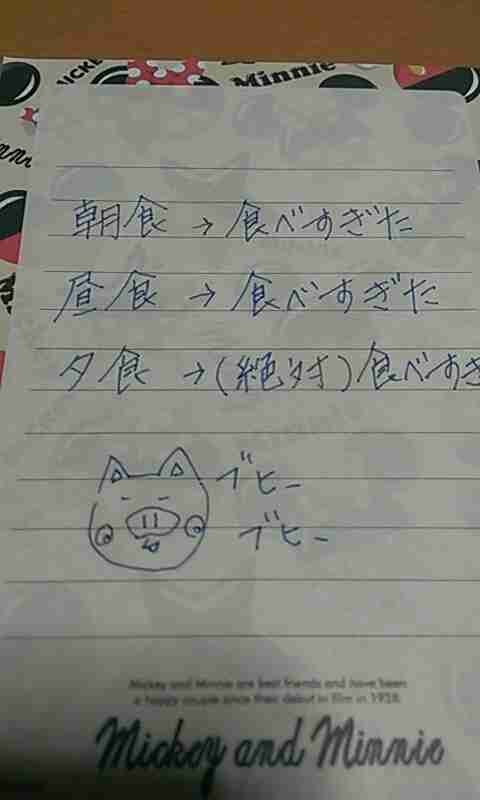 Minnie
朝食 → 食べすぎた
昼食 → 食べすぎた
夕食 → (絶対) 食べすぎ
ブヒー
ブヒー
Mickey and Minnie are best friends and have been
a happy couple since their debut in film in 1928.
Mickey and Minnie